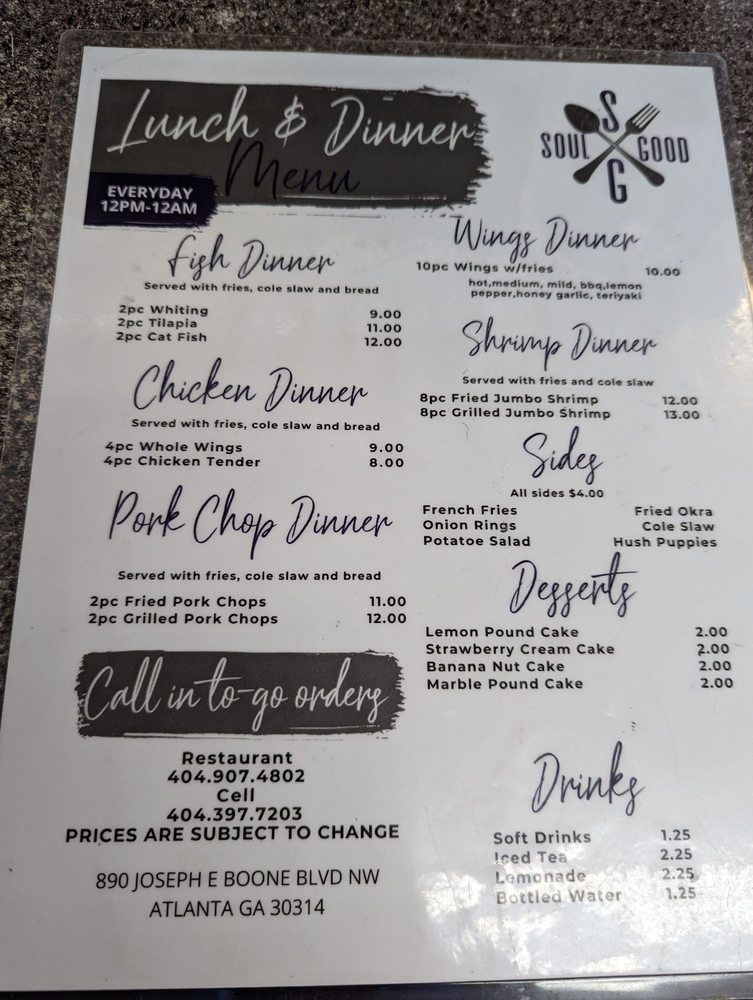 Lunch & Dinner
Menu
EVERYDAY
12PM-12AM
S
SOUL GOOD
G
Fish Dinner
Served with fries, cole slaw and bread
2pc Whiting 9.00
2pc Tilapia 11.00
2pc Cat Fish 12.00
Chicken Dinner
Served with fries, cole slaw and bread
4pc Whole Wings 9.00
4pc Chicken Tender 8.00
Pork Chop Dinner
Served with fries, cole slaw and bread
2pc Fried Pork Chops 11.00
2pc Grilled Pork Chops 12.00
Call in to-go orders
Restaurant
404.907.4802
Cell
404.397.7203
PRICES ARE SUBJECT TO CHANGE
890 JOSEPH E BOONE BLVD NW
ATLANTA GA 30314
Wings Dinner
10pc Wings w/fries 10.00
hot,medium, mild, bbq,lemon
pepper,honey garlic, teriyaki
Shrimp Dinner
Served with fries and cole slaw
8pc Fried Jumbo Shrimp 12.00
8pc Grilled Jumbo Shrimp 13.00
Sides
All sides $4.00
French Fries Fried Okra
Onion Rings Cole Slaw
Potatoe Salad Hush Puppies
Desserts
Lemon Pound Cake 2.00
Strawberry Cream Cake 2.00
Banana Nut Cake 2.00
Marble Pound Cake 2.00
Drinks
Soft Drinks 1.25
Iced Tea 2.25
Lemonade 2.25
Bottled Water 1.25